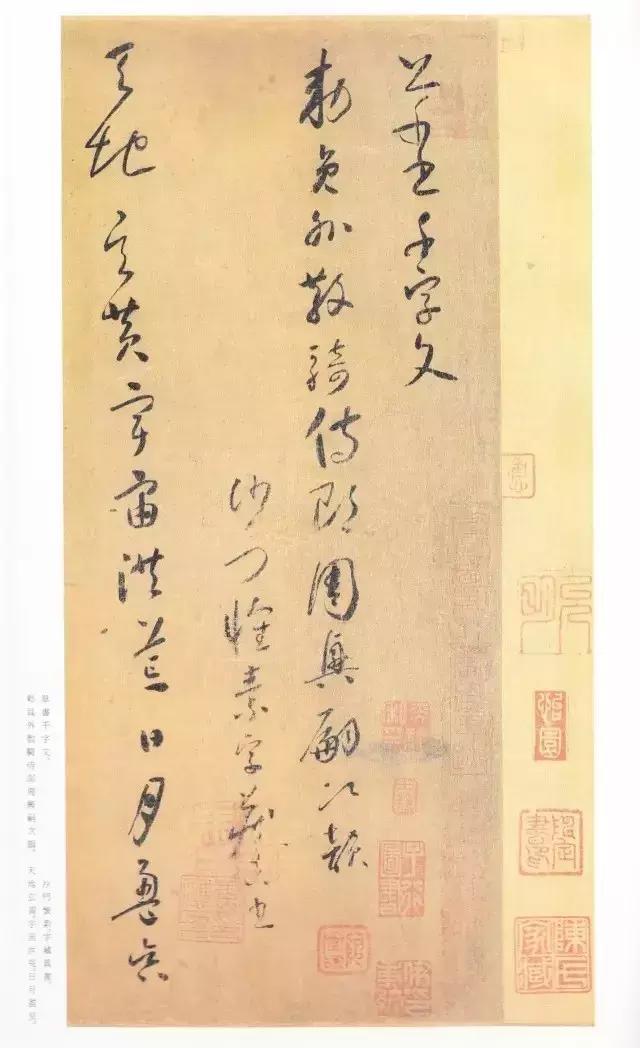 草書千字文
勑員外散騎侍郎周興嗣次韻
沙門懷素字藏真書
天地玄黃宇宙洪荒日月盈昃
怡園
陳氏家藏
草書千字文。　沙門懷素字藏真書。
勑員外散騎侍郎周興嗣次韻。　天地玄黃，宇宙洪荒，日月盈昃，